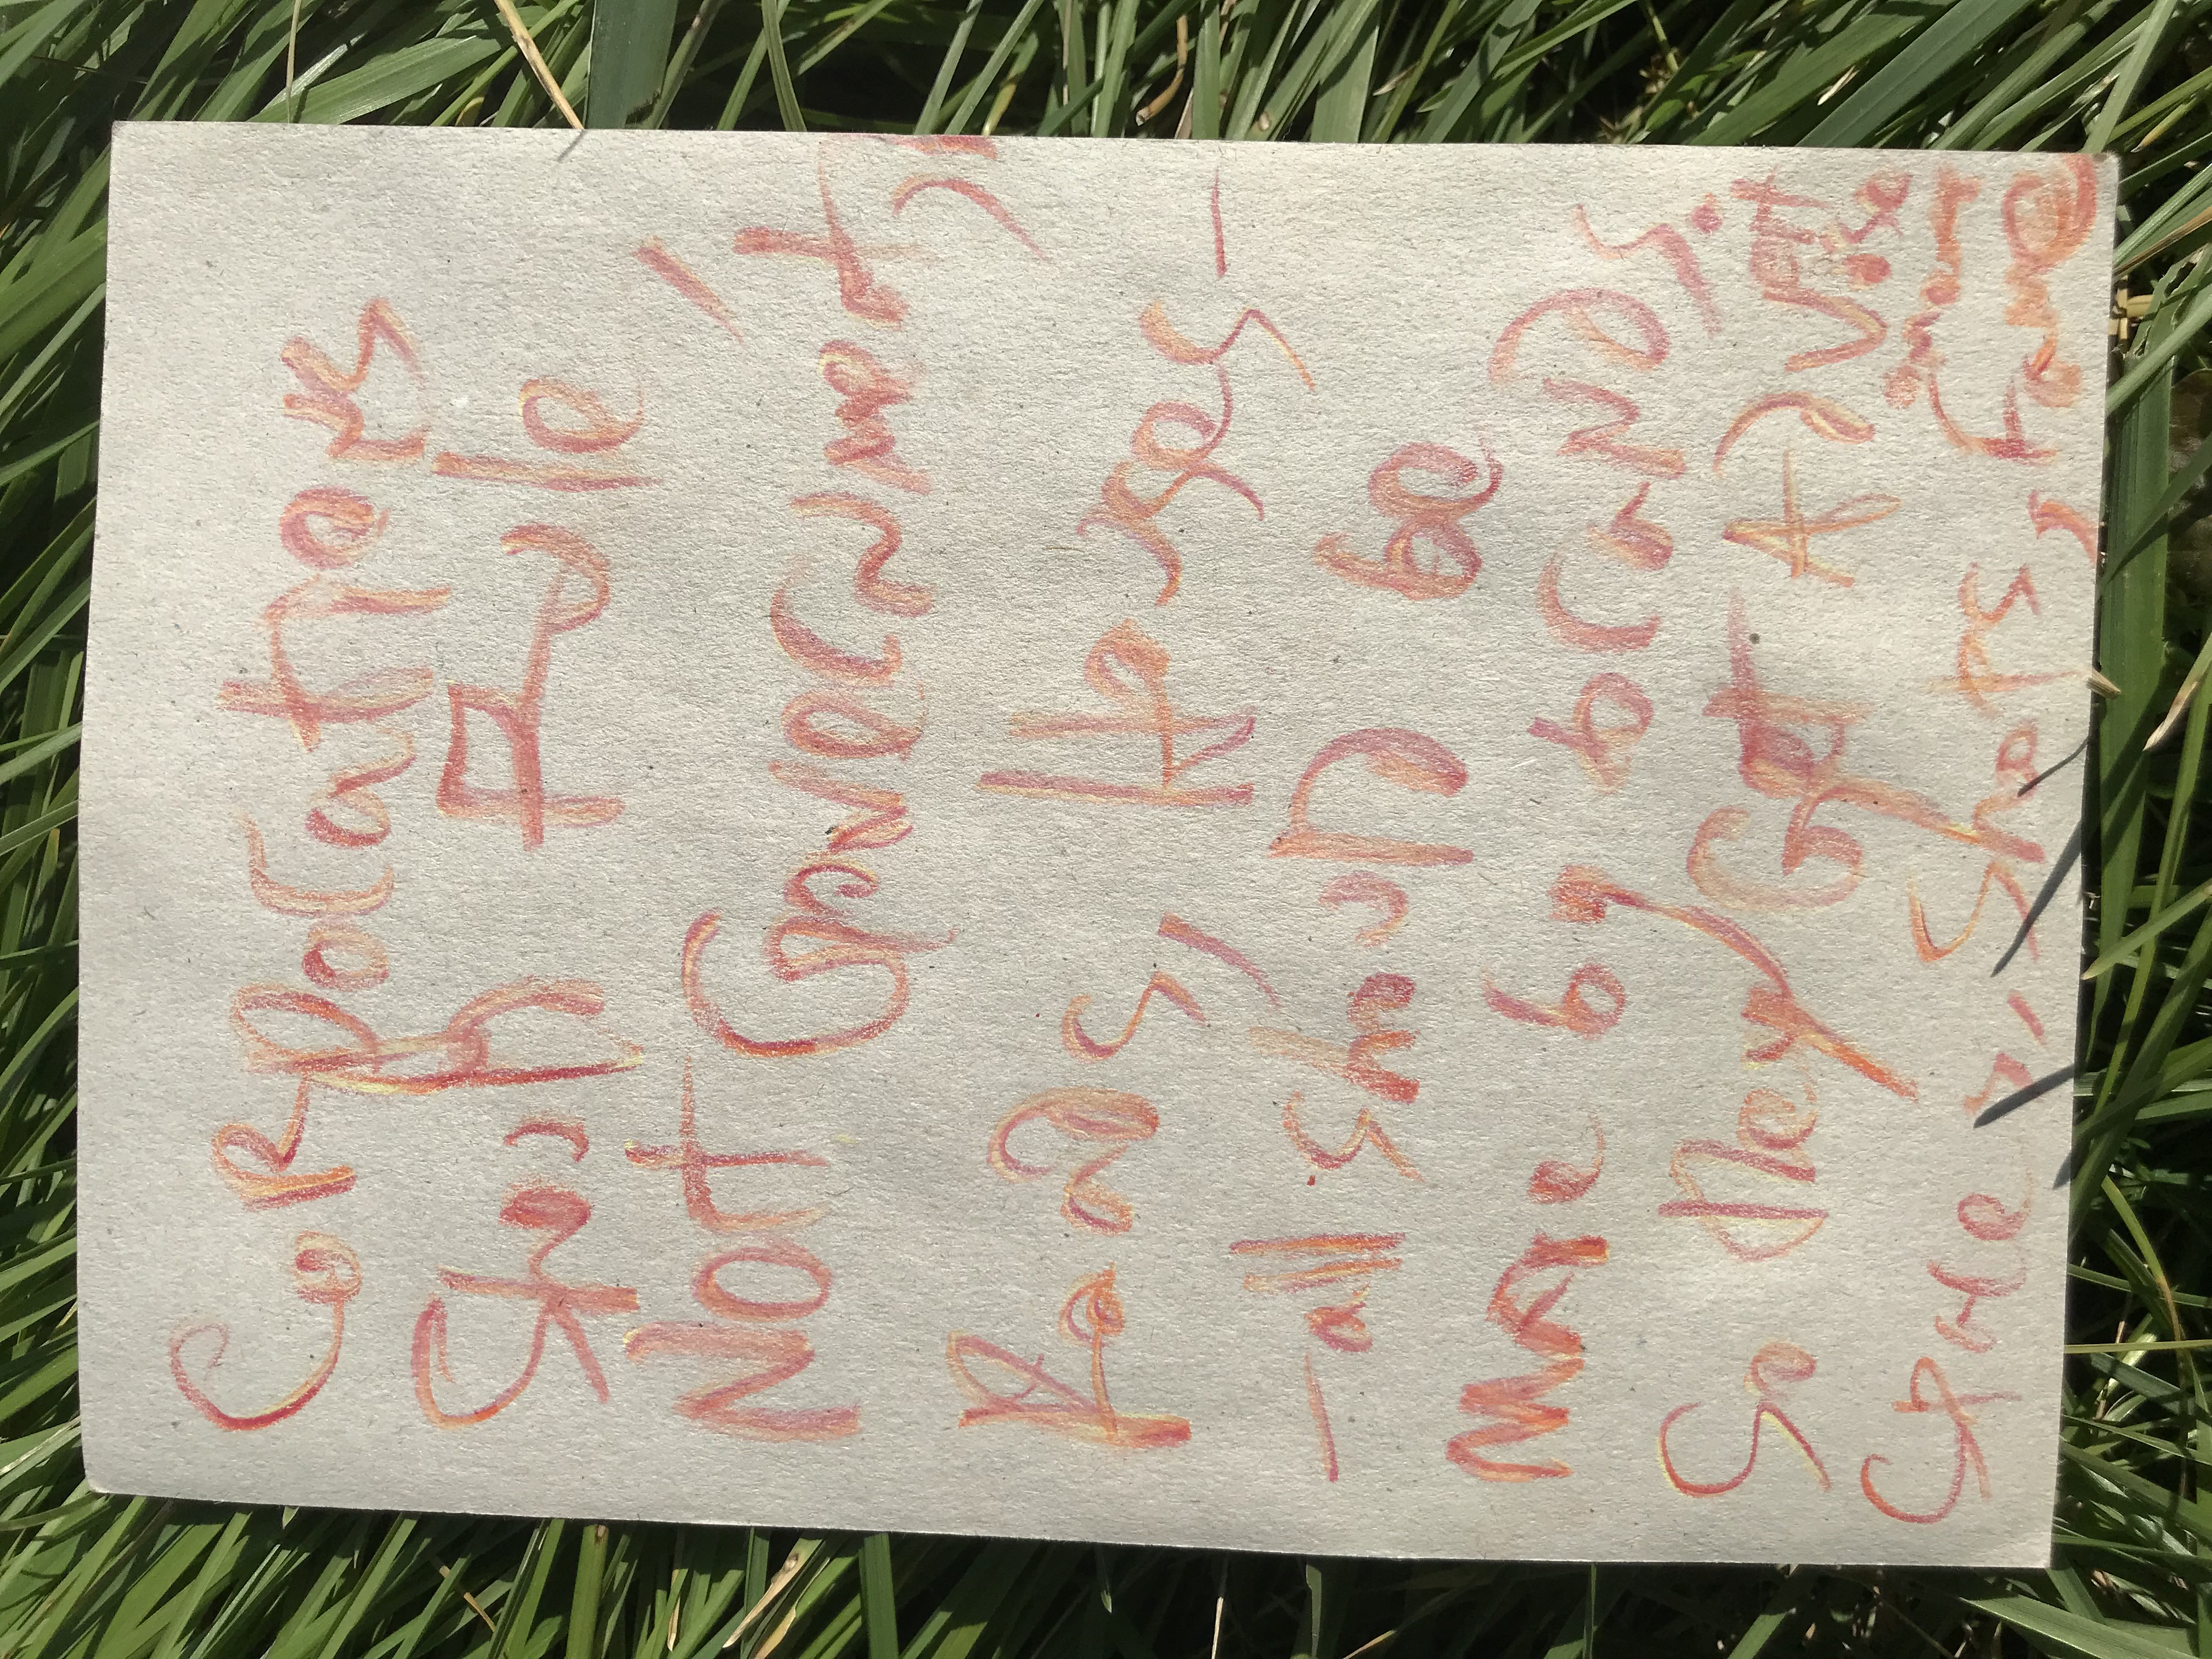 Corporations
Should Rule
Not Government,
Roads, Houses—
—all should be
Made by brands.
So they Get Advertise
ment
Spaces, Shops, Fame